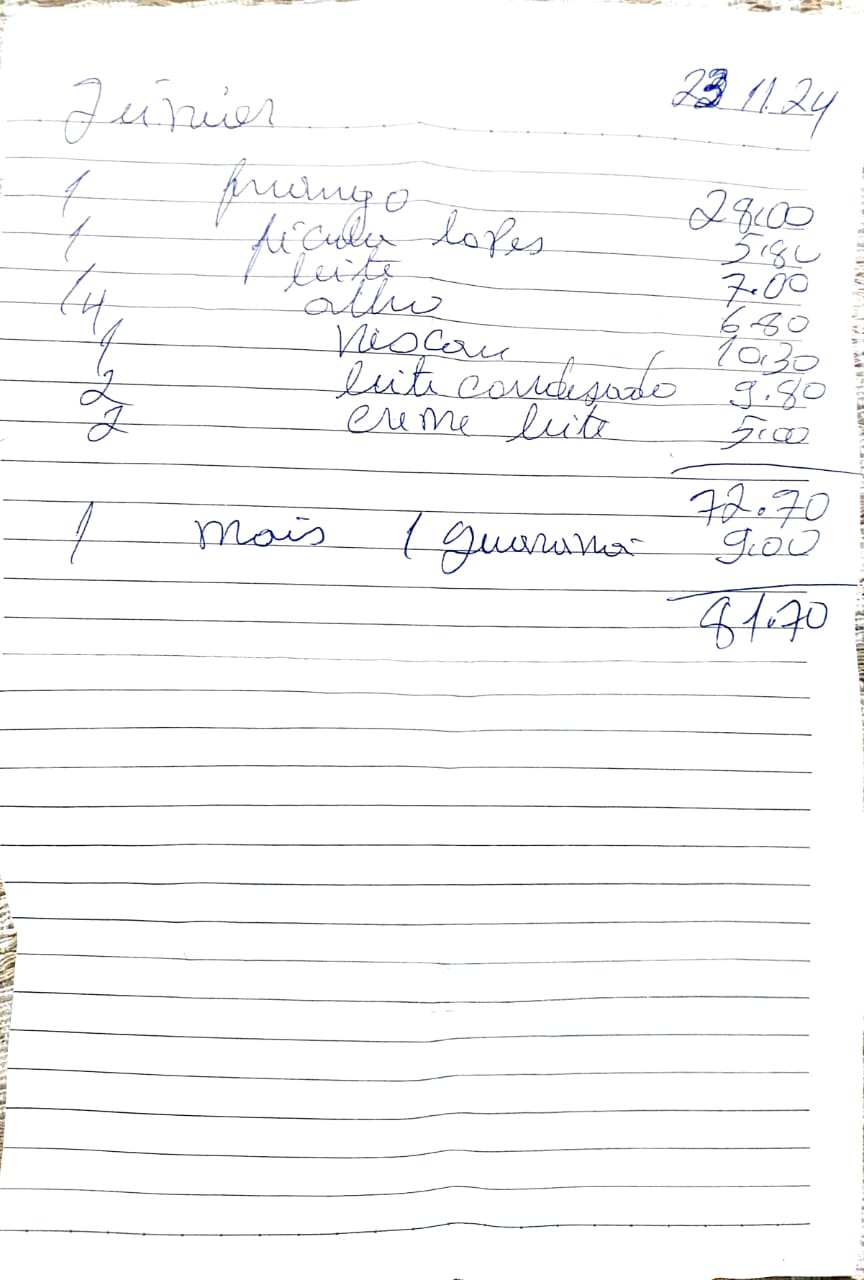 Júnior 23 11.24
1 frango 28,00
1 fécula lopes 5,80
leite 7.00
1/4 alho 6.80
1 nescau 10,30
2 leite condesado 9.80
2 creme leite 5,00
72.70
1 mais 1 guaraná 9,00
81.70